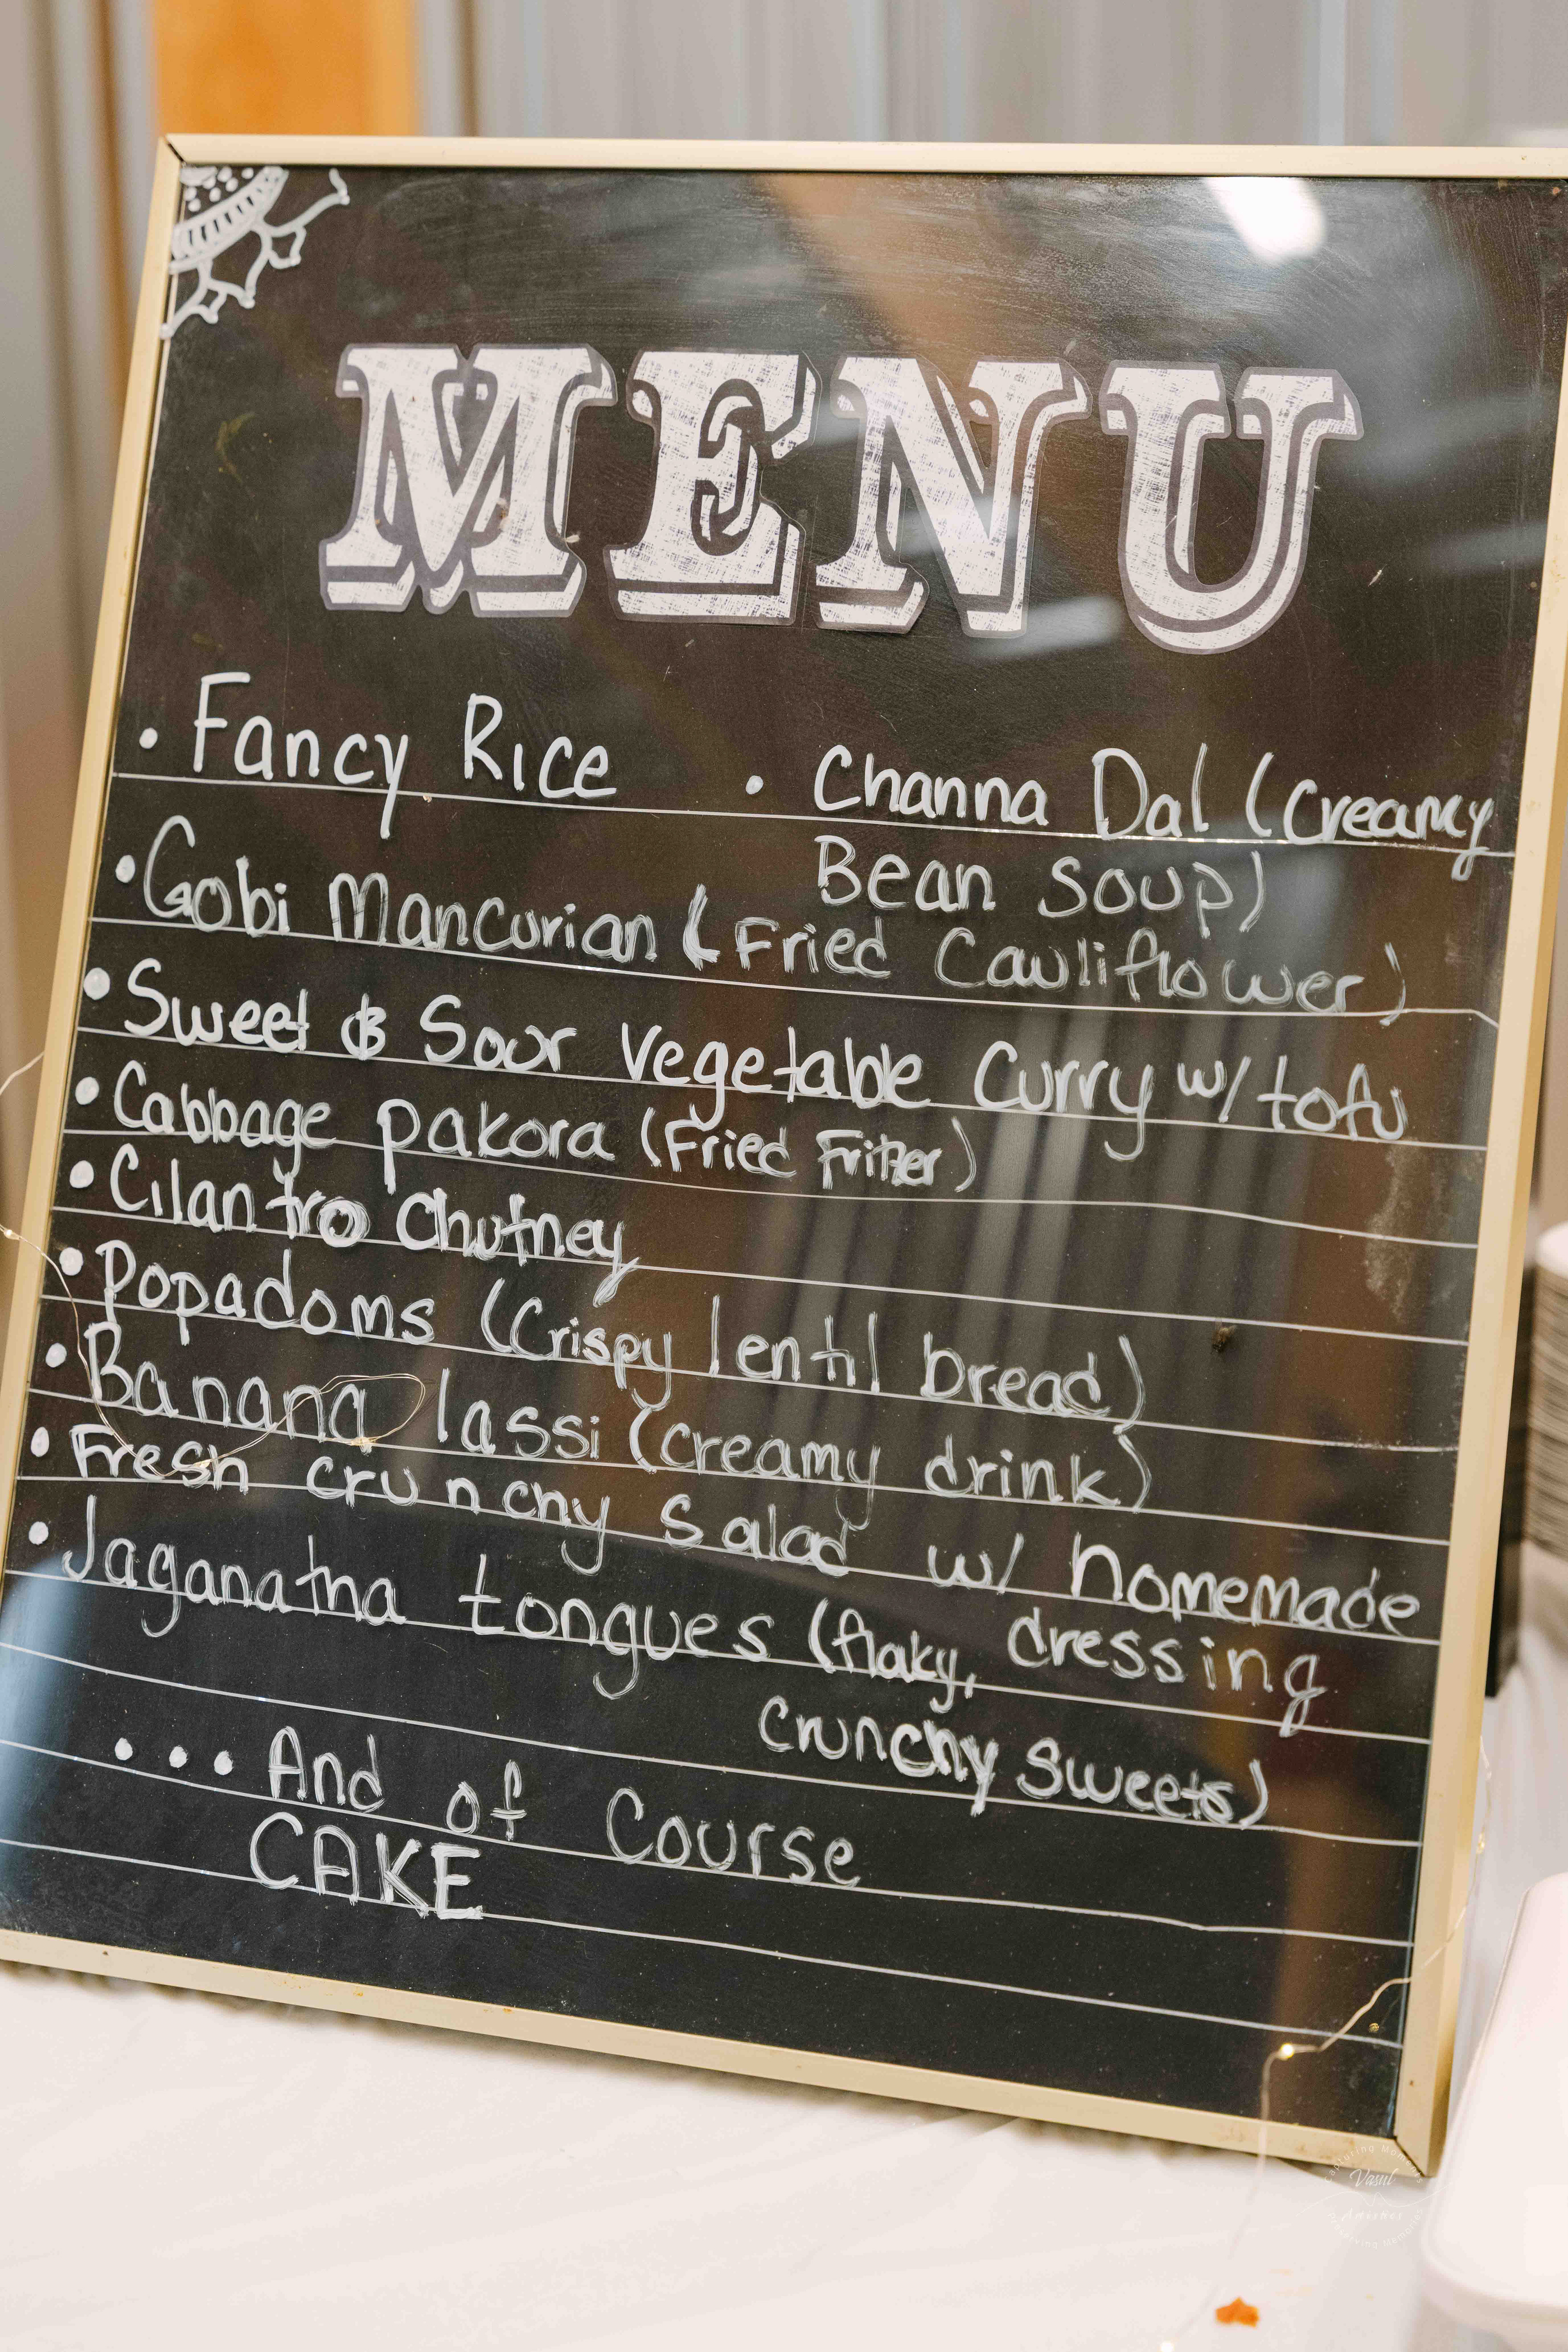 MENU
• Fancy Rice • Channa Dal (Creamy
Bean Soup)
• Gobi Mancurian (Fried Cauliflower)
• Sweet & Sour Vegetable Curry w/ tofu
• Cabbage pakora (Fried Fritter)
• Cilantro Chutney
• Popadoms (Crispy lentil bread)
• Banana lassi (creamy drink)
• Fresh crunchy Salad w/ homemade
dressing
• Jaganatha tongues (flaky,
crunchy sweets)
... And of Course
CAKE
Vasul